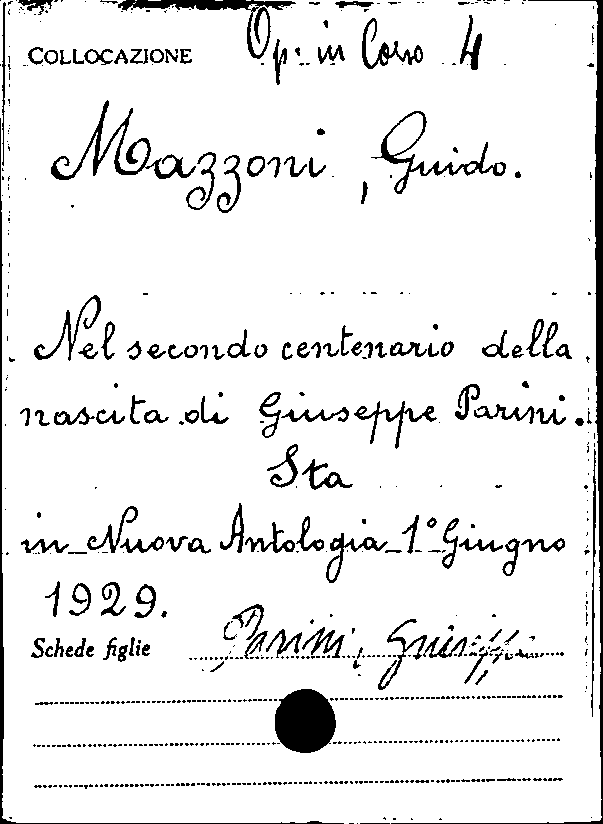 COLLOCAZIONE Op. in Corso 4
Mazzoni, Guido.
Nel secondo centenario della
nascita di Giuseppe Parini.
Sta
in Nuova Antologia 1° Giugno
1929.
Schede figlie Parini, Giuseppe